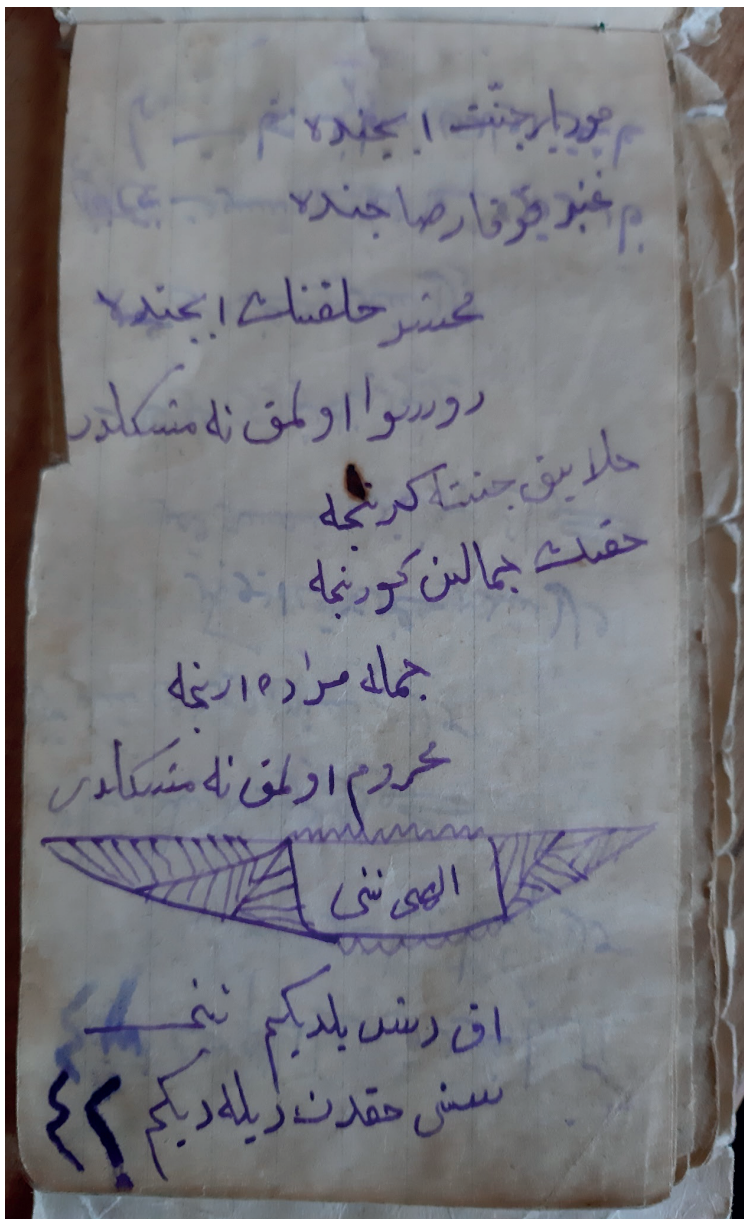 حوریلر جنت ایچنده
غنبر قوقار صاچنده
محشر خلقنك ایچنده
رورسوا اولمق نه مشکلدر
خلایق جنته کرنجه
حقك جمالین کورنجه
جمله مراده ارنجه
محروم اولمق نه مشکلدر
الهی ننی
اق دشد بلدیکم ننم
سنی حقدن دیله دیکم
٤٢